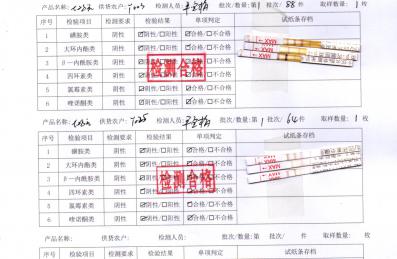 产品名称: 供货农户: 检测人员: 批次/数量:第1 批次/ 88 件 取样数量: 1 枚
序号 检验项目 检测要求 检验结果 单项判定 试纸条存档
1 磺胺类 阴性 ☑阴性/☐阳性 ☑合格/☐不合格
2 大环内酯类 阴性 ☑阴性/☐阳性 ☑合格/☐不合格
3 β一内酰胺类 阴性 ☑阴性/☐阳性 ☑合格/☐不合格
4 四环素类 阴性 ☑阴性/☐阳性 ☑合格/☐不合格
5 氯霉素类 阴性 ☑阴性/☐阳性 ☑合格/☐不合格
6 喹诺酮类 阴性 ☑阴性/☐阳性 ☑合格/☐不合格
检测合格
MAX
产品名称: 供货农户: 检测人员: 批次/数量:第1 批次/ 64 件 取样数量: 1 枚
序号 检验项目 检测要求 检验结果 单项判定 试纸条存档
1 磺胺类 阴性 ☑阴性/☐阳性 ☑合格/☐不合格
2 大环内酯类 阴性 ☑阴性/☐阳性 ☑合格/☐不合格
3 β一内酰胺类 阴性 ☑阴性/☐阳性 ☑合格/☐不合格
4 四环素类 阴性 ☑阴性/☐阳性 ☑合格/☐不合格
5 氯霉素类 阴性 ☑阴性/☐阳性 ☑合格/☐不合格
6 喹诺酮类 阴性 ☑阴性/☐阳性 ☑合格/☐不合格
检测合格
MAX
产品名称: 供货农户: 检测人员: 批次/数量:第 批次/ 件 取样数量: 枚
序号 检验项目 检测要求 检验结果 单项判定 试纸条存档